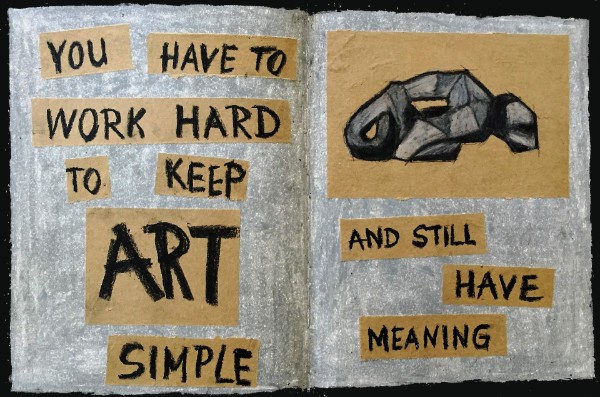 YOU HAVE TO
WORK HARD
TO KEEP
ART
SIMPLE
AND STILL
HAVE
MEANING